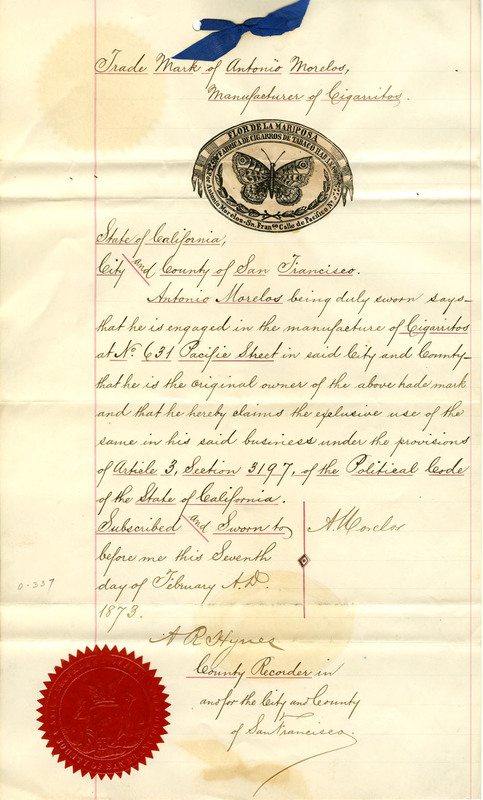 Trade Mark of Antonio Morelos,
Manufacturer of Cigarritos.
FLOR DE LA MARIPOSA
FABRICA DE CIGARROS DE TABACO HABANO
Antonio Morelos. Sn. Franco. Calle de Pacifico No.
State of California,
City and County of San Francisco.
Antonio Morelos being duly sworn says–
that he is engaged in the manufacture of Cigarritos
at No. 631 Pacific Street in said City and County–
that he is the original owner of the above trade mark
and that he hereby claims the exclusive use of the
same in his said business under the provisions
of Article 3, Section 3197, of the Political Code
of the State of California.
Subscribed and Sworn to
A. Morelos
before me this Seventh
day of February A.D.
1873.
0-337
A R Hynes
County Recorder in
and for the City and County
of San Francisco.